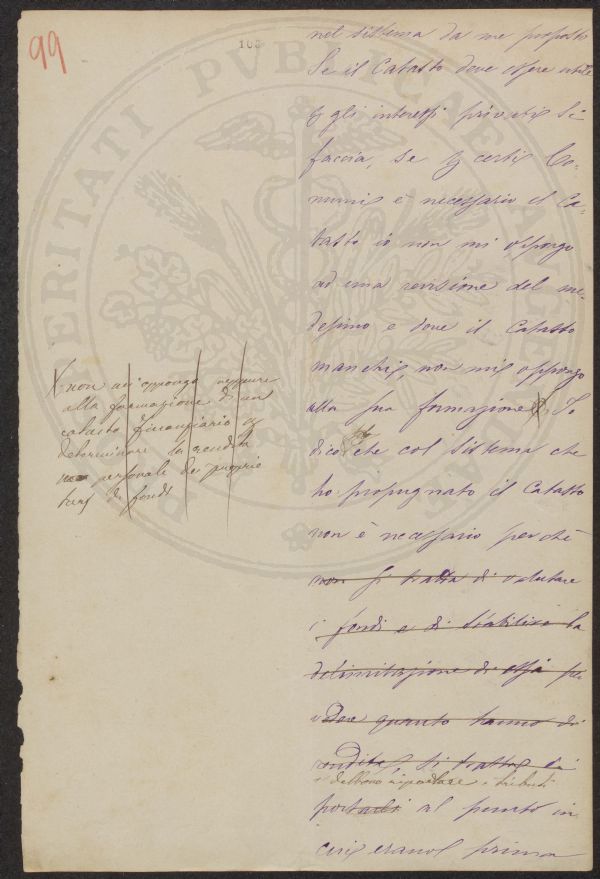 99
108
nel sistema da me proposto
Se il Catasto deve essere utile
gli interessi privati si
faccia, se certi Co-
muni è necessario il Ca-
tasto io non mi oppongo
ad una revisione del me-
desimo e dove il Catasto
manchi, non mi oppongo
alla sua formazione Io
dico che col sistema che
ho propugnato il Catasto
non è necessario perchè
non si tratta di valutare
i fondi e di stabilire la
delimitazione di essi per
vedere quanto hanno di
rendita, si tratta di
debbono riportare i tributi
portarli al punto in
cui erano prima
X non mi oppongo neppure
alla formazione di un
catasto finanziario
determinare la rendita
personale dei proprie
tarj di fondi
PERITATI PVBLICAE